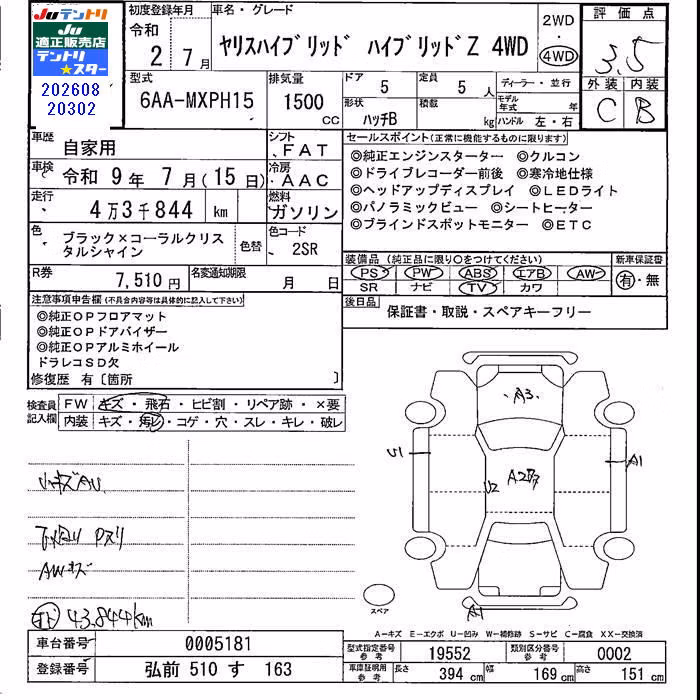 Juテントリ
Ju
適正販売店
テントリ
★スター
202608
20302
初度登録年月
令和
2 7月
車名・グレード
ヤリスハイブリッド ハイブリッドZ 4WD
2WD
・
4WD
評価点
3.5
外装 内装
C B
型式
6AA-MXPH15
排気量
1500
CC
ドア
5
定員
5人
ディーラー・並行
形状
ハッチB
積載
kg
モデル年式
年
ハンドル 左・右
車歴
自家用
シフト
FAT
車検
令和 9年 7月(15日)
冷房
AAC
走行
4万3千844 km
燃料
ガソリン
色
ブラック×コーラルクリスタルシャイン
色替
色コード
2SR
R券
7,510円
名変通知期限
月 日
セールスポイント(正常に機能するものに限ります)
◎純正エンジンスターター ◎クルコン
◎ドライブレコーダー前後 ◎寒冷地仕様
◎ヘッドアップディスプレイ ◎LEDライト
◎パノラミックビュー ◎シートヒーター
◎ブラインドスポットモニター ◎ETC
装備品(純正品に限り○をつけてください)
PS PW ABS エアB AW
SR ナビ TV カワ
新車保証書
有・無
後日品
保証書・取説・スペアキーフリー
注意事項申告欄(不具合内容等は具体的に記入して下さい)
◎純正OPフロアマット
◎純正OPドアバイザー
◎純正OPアルミホイール
ドラレコSD欠
修復歴 有〔箇所 〕
検査員記入欄
FW キズ・飛石・ヒビ割・リペア跡・×要
内装 キズ・汚レ・コゲ・穴・スレ・キレ・破レ
小キズAU
下廻り Pスリ
AWキズ
43,844km
A3
A1
U2
A1
スペア
A-キズ E-エクボ U-凹み W-補修跡 S-サビ C-腐食 XX-交換済
車台番号
0005181
登録番号
弘前 510 す 163
型式指定番号参考
19552
類別区分番号参考
0002
車庫証明用参考
長さ
394 cm
幅
169 cm
高さ
151 cm